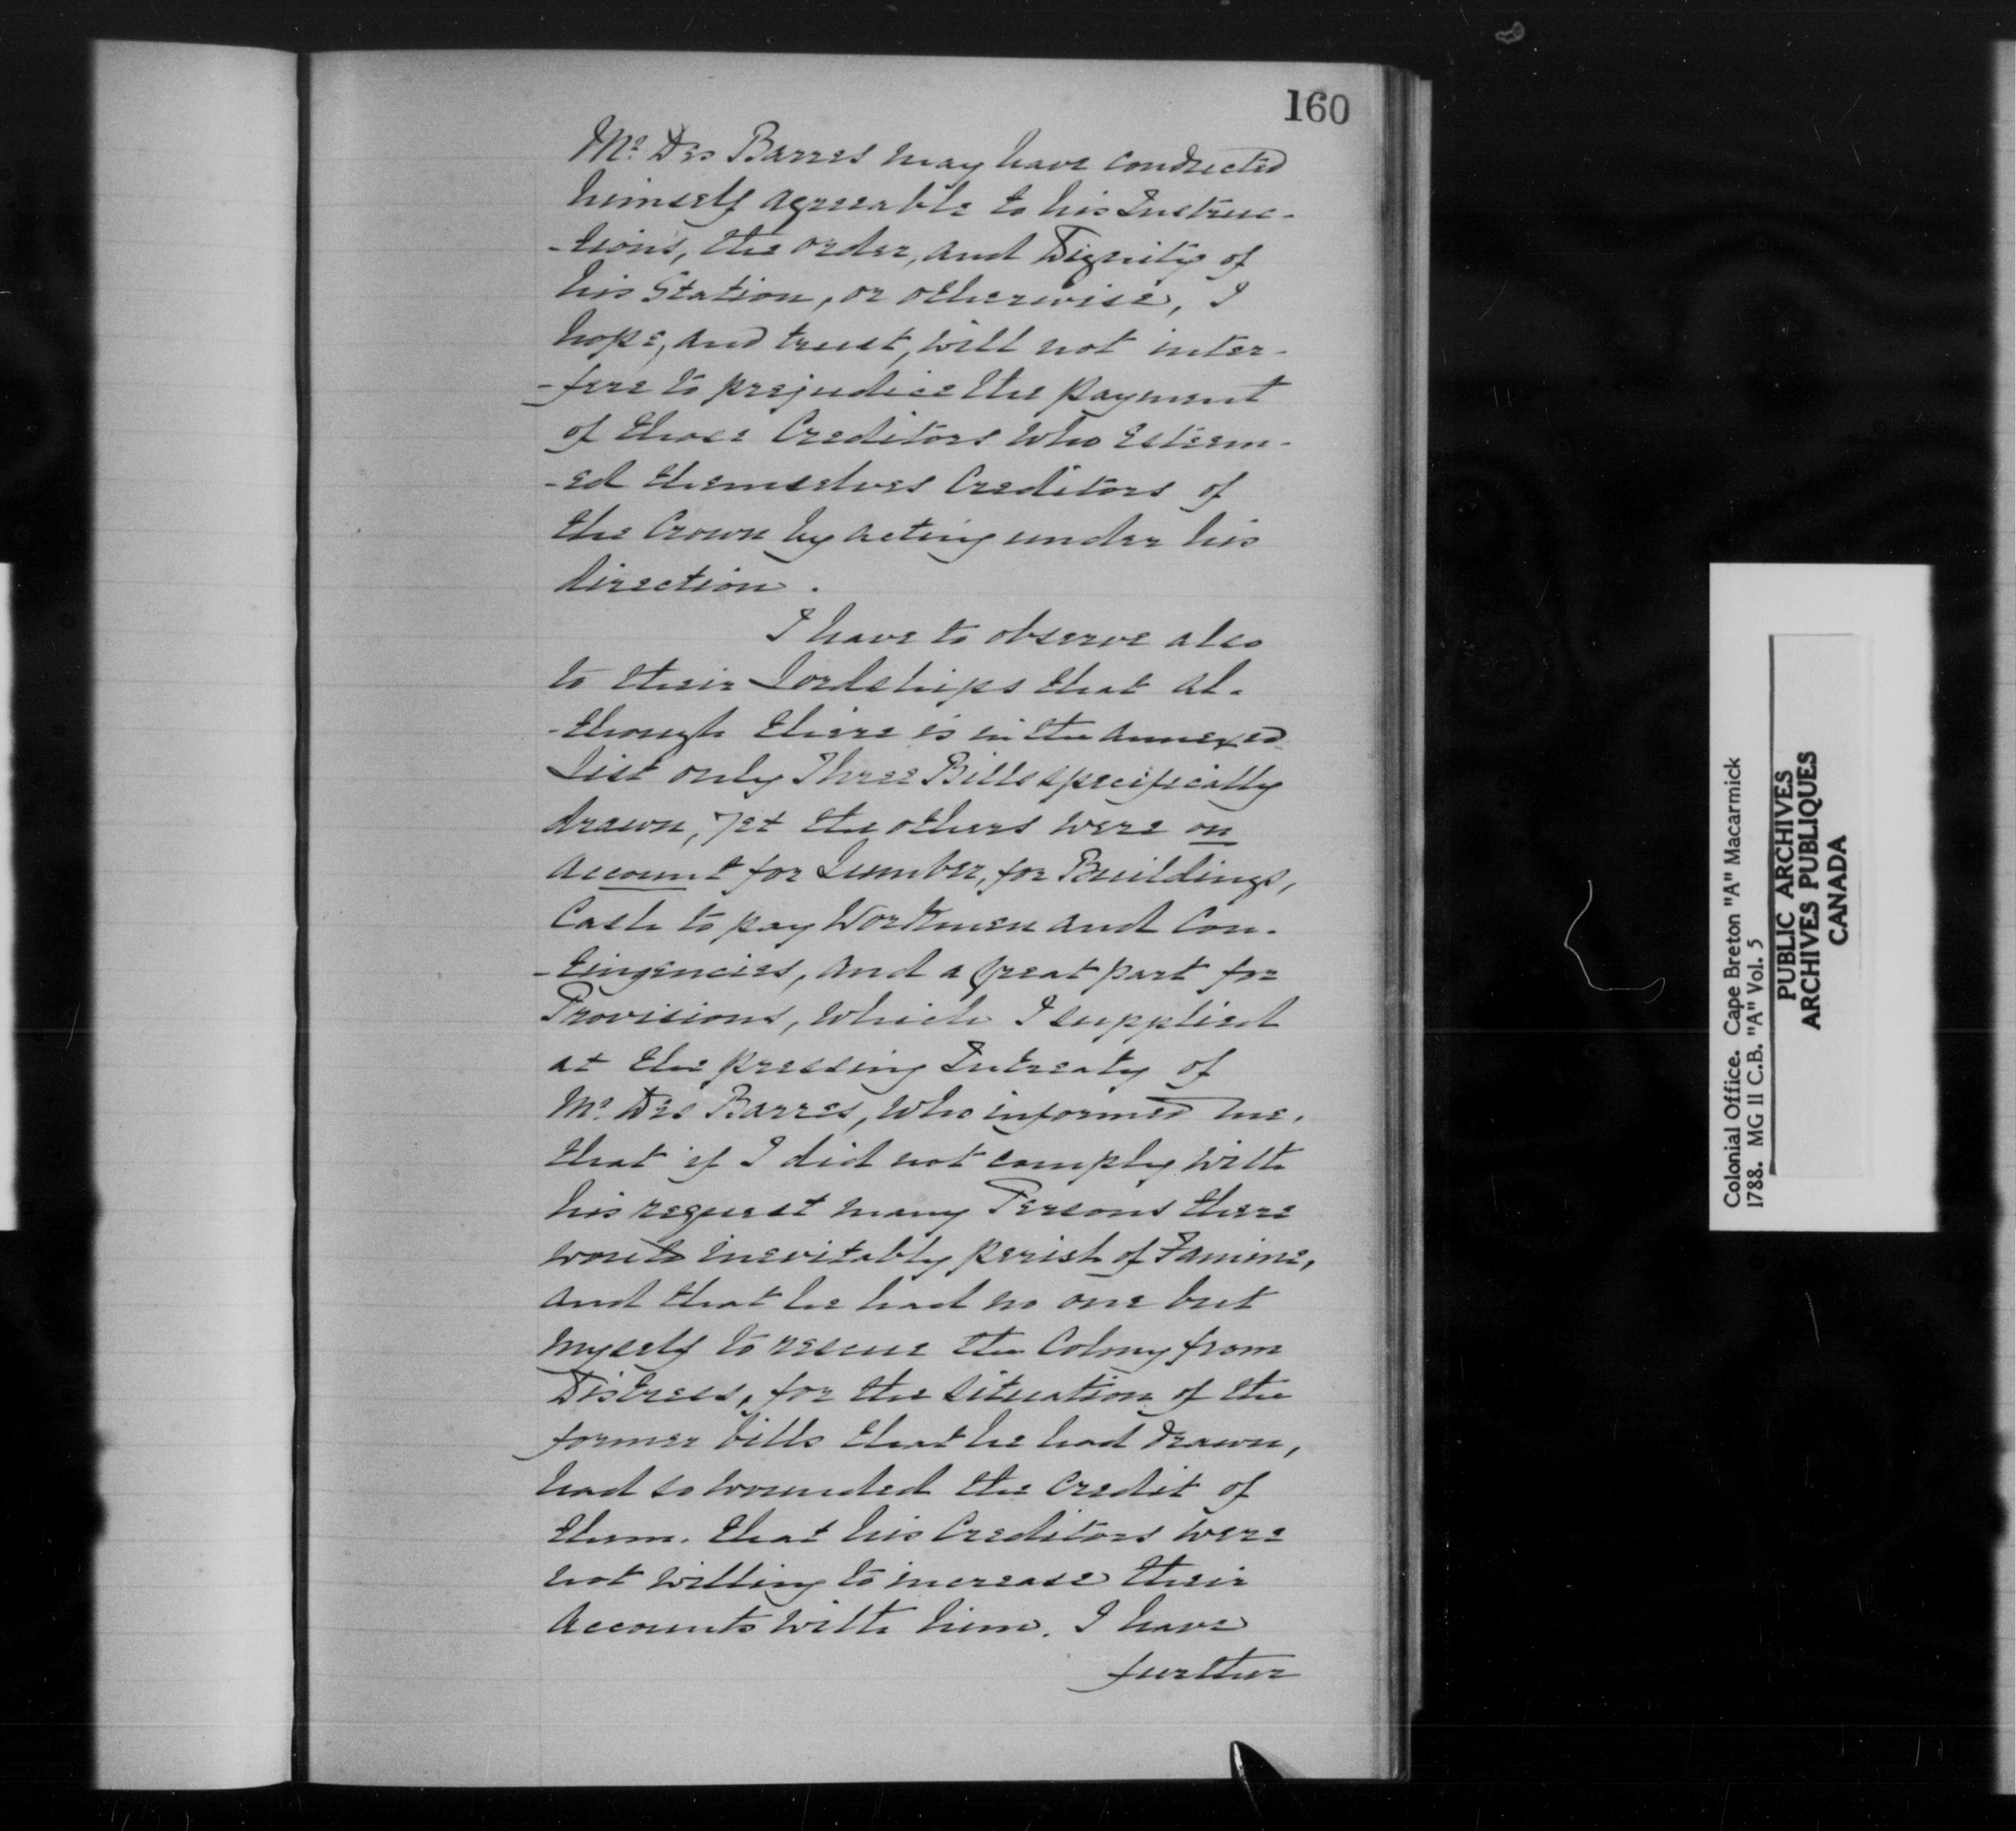 160
Mr. Des Barres may have conducted
himself agreeable to his Instruc-
-tions, the order, and Dignity of
his Station, or otherwise, I
hope, and trust, will not inter-
-fere to prejudice the payment
of those Creditors who Esteem-
-ed themselves Creditors of
the Crown by acting under his
direction.
I have to observe also
to their Lordships that al-
-though there is in the annexed
List only Three Bills specifically
drawn, yet the others were on
account for Lumber, for Buildings,
Cash to pay Workmen and Con-
-tingencies, and a great part for
Provisions, which I supplied
at the pressing Intreaty of
Mr. Des Barres, who informed me,
that if I did not comply with
his request many Persons there
would inevitably perish of Famine,
and that he had no one but
myself to rescue the Colony from
Distress, for the situation of the
former bills that he had drawn,
had so wounded the credit of
them, that his Creditors were
not willing to increase their
Accounts with him. I have
further
Colonial Office. Cape Breton "A" Macarmick
1788. MG 11 C.B. "A" Vol. 5
PUBLIC ARCHIVES
ARCHIVES PUBLIQUES
CANADA